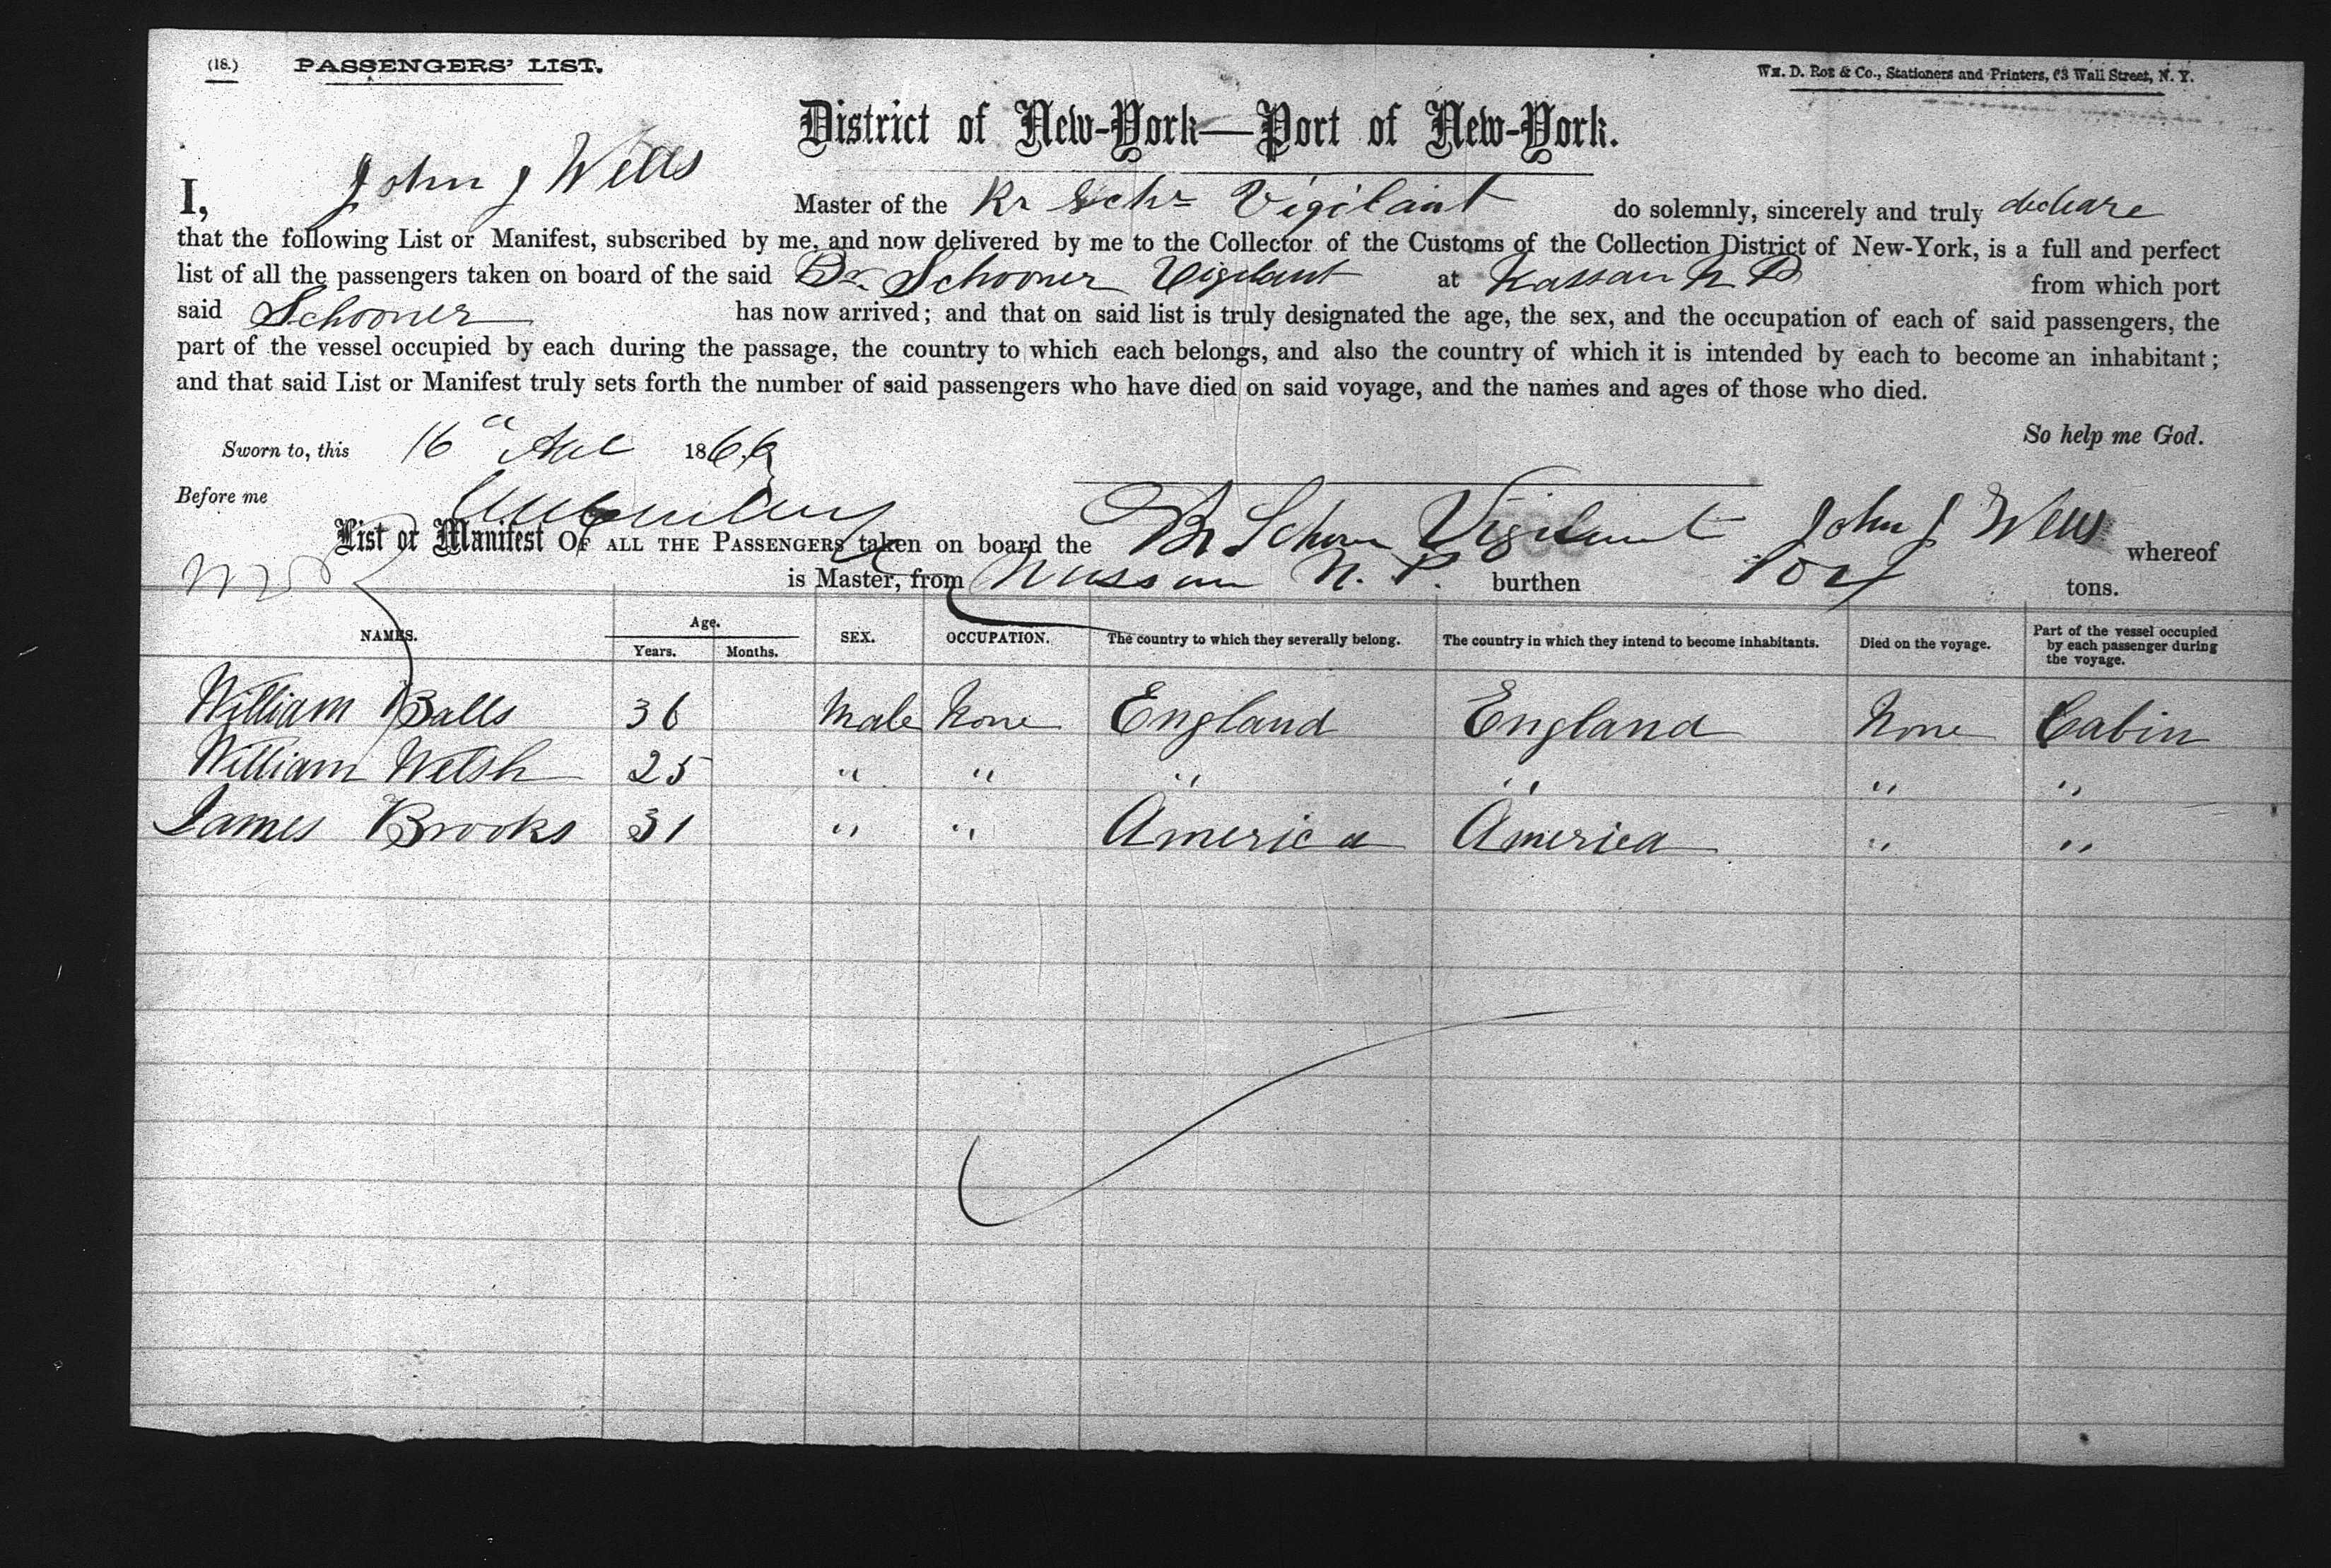 (18.) PASSENGERS' LIST.
Wm. D. Roe & Co., Stationers and Printers, 63 Wall Street, N. Y.
District of New-York—Port of New-York.
I, John J Wells Master of the Br Schr Vigilant do solemnly, sincerely and truly declare
that the following List or Manifest, subscribed by me, and now delivered by me to the Collector of the Customs of the Collection District of New-York, is a full and perfect
list of all the passengers taken on board of the said Br. Schooner Vigilant at Nassau N P from which port
said Schooner has now arrived; and that on said list is truly designated the age, the sex, and the occupation of each of said passengers, the
part of the vessel occupied by each during the passage, the country to which each belongs, and also the country of which it is intended by each to become an inhabitant;
and that said List or Manifest truly sets forth the number of said passengers who have died on said voyage, and the names and ages of those who died.
So help me God.
Sworn to, this 16 1866
Before me
List or Manifest OF ALL THE PASSENGERS taken on board the Br Schr Vigilant John J Wells whereof
is Master, from Nassau N. P. burthen tons.
NAMES. Age. Years. Months. SEX. OCCUPATION. The country to which they severally belong. The country in which they intend to become inhabitants. Died on the voyage. Part of the vessel occupied by each passenger during the voyage.
William Balls 36 Male None England England None Cabin
William Welsh 25 " " " " " "
James Brooks 31 " " America America " "